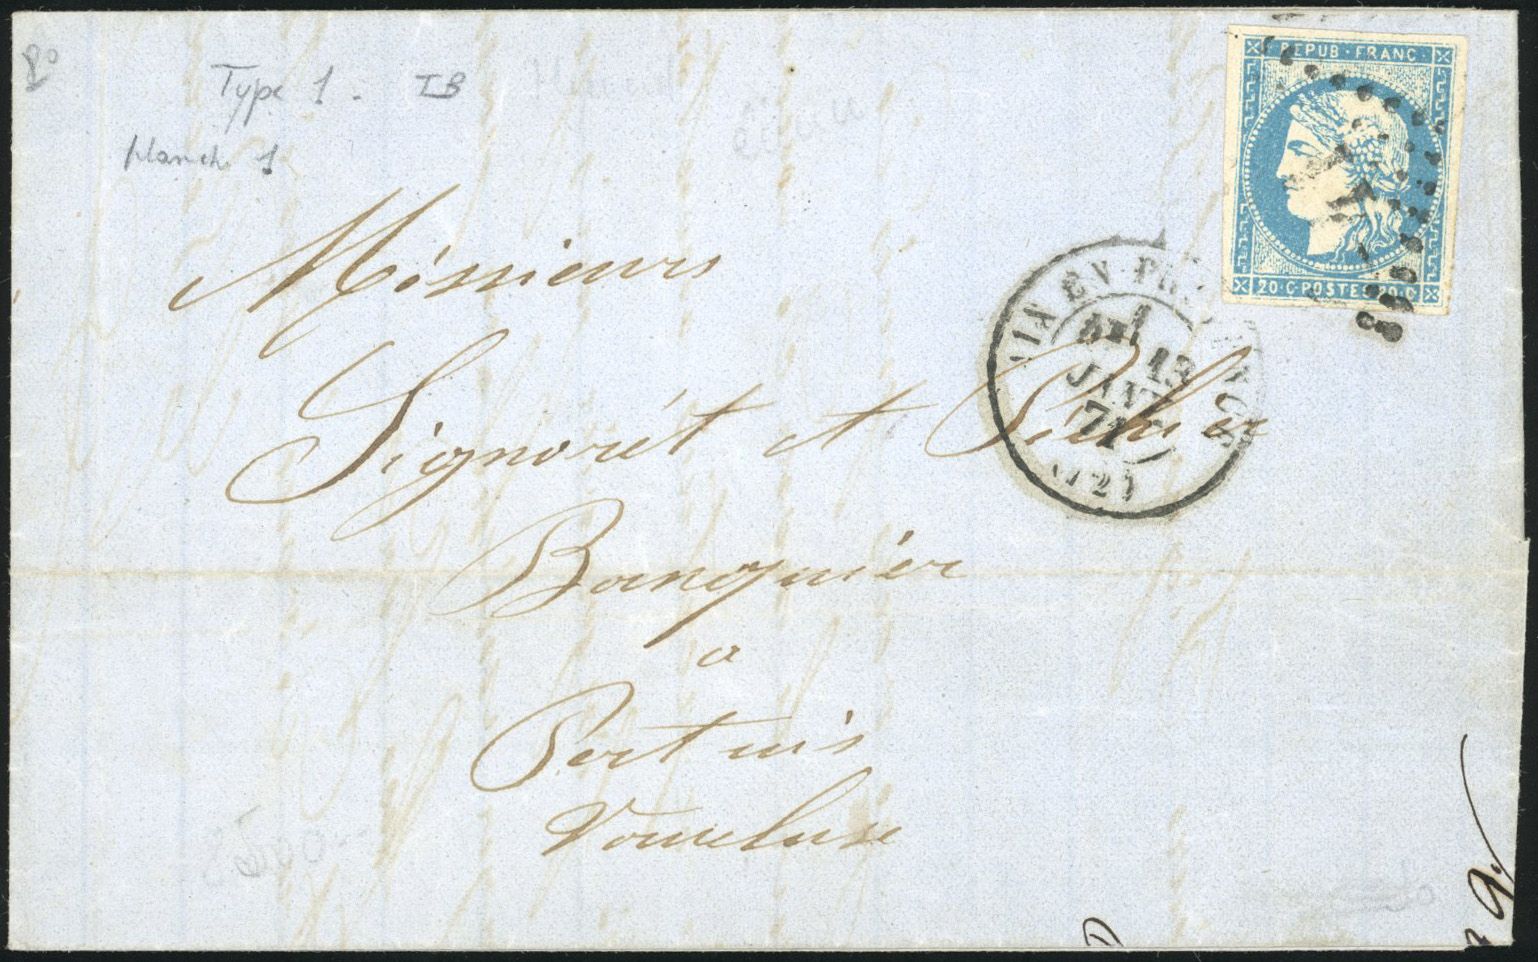 Type 1 - TB
planche 1
REPUB · FRANC ·
20 · C · POSTES 20 · C
AIX EN PROVENCE
13
JANV.
71
(12)
Méssieurs
Signorét et Piehier
Banquiér
a
Pertuis
Vaucluse